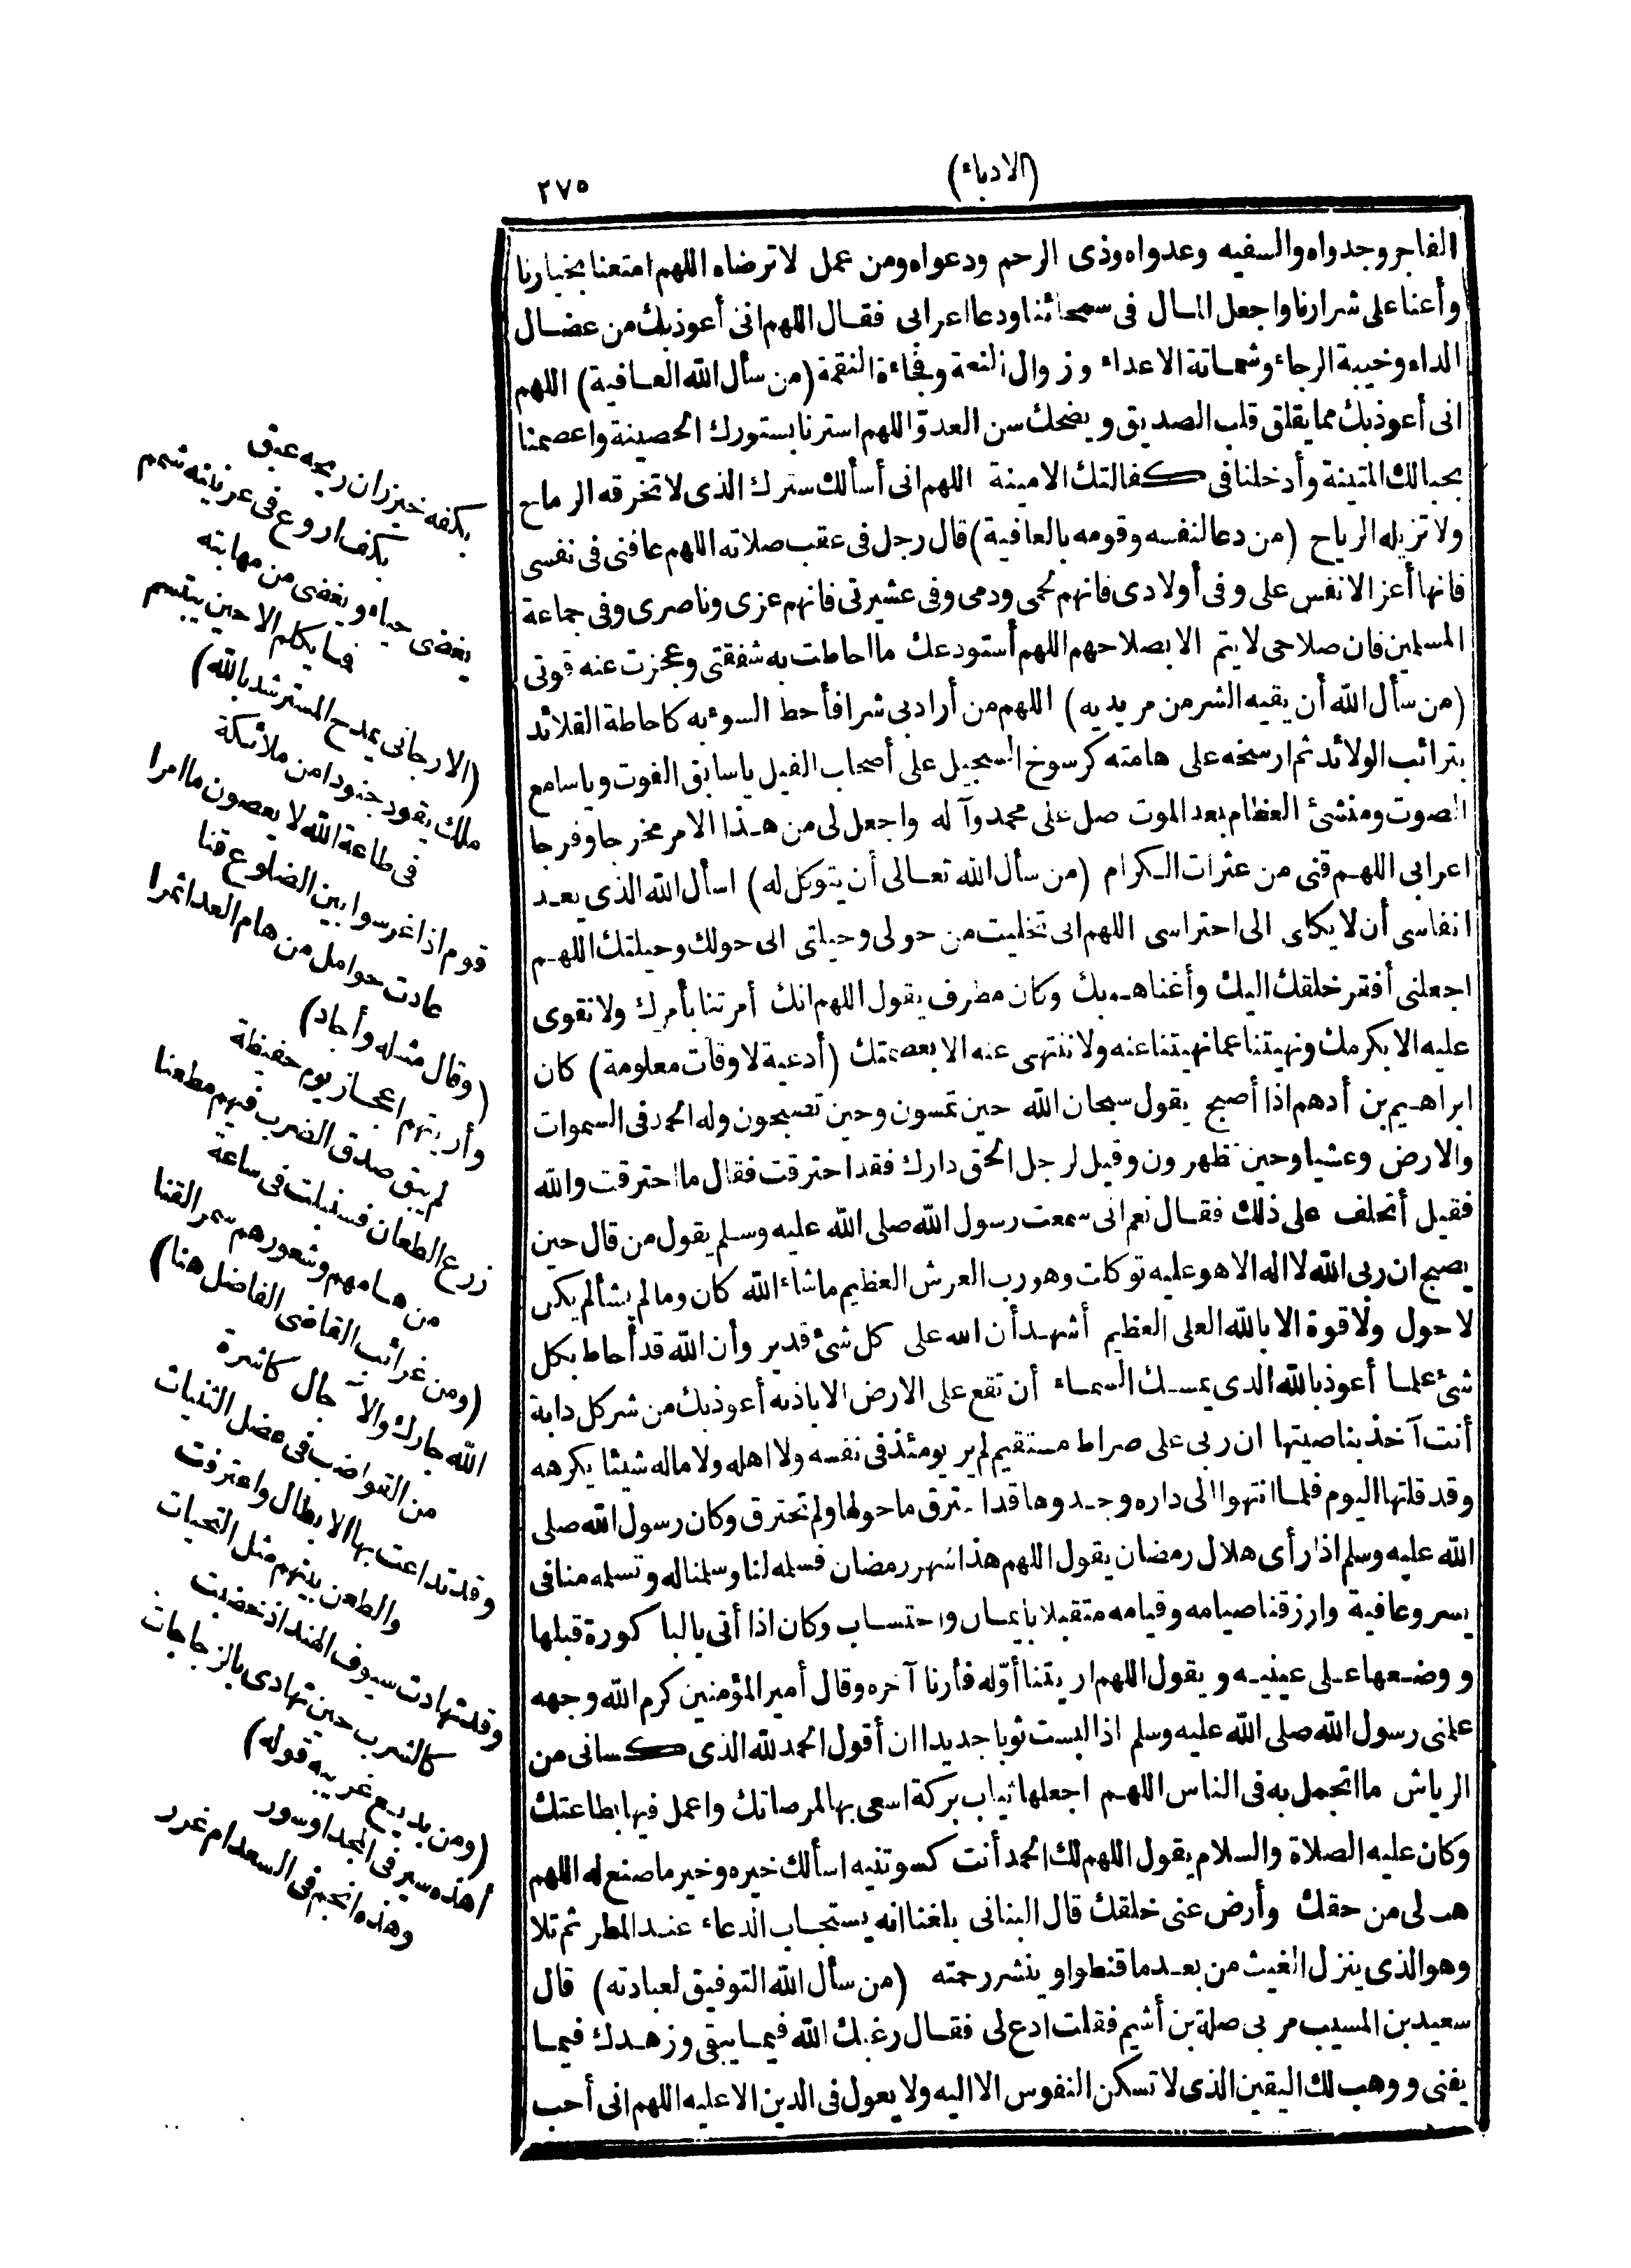 (الادباء)
٢٧٥
الفاجر وجدواه والسفيه وعدواه وذى الرحم ودعواه ومن عمل لا ترضاه اللهم امتعنا بخيارنا
وأعنا على شرارنا واجعل المال فى سمحائنا ودعا اعرابى فقال اللهم انى أعوذبك من عضال
الداء وخيبة الرجاء وشماتة الاعداء وزوال النعمة وفجاءة النقمة (من سأل الله العافية) اللهم
انى أعوذبك مما يقلق قلب الصديق ويضحك سن العدوّ اللهم استرنا بستورك الحصينة واعصمنا
بحبالك المتينة وأدخلنا فى كفالتك الامينة اللهم انى أسألك سترك الذى لا تخرقه الرماح
ولا تزيله الرياح (من دعا لنفسه وقومه بالعافية) قال رجل فى عقب صلاته اللهم عافنى فى نفسى
فانها أعز الانفس على وفى أولادى فانهم لحمى ودمى وفى عشيرتى فانهم عزى وناصرى وفى جماعة
المسلمين فان صلاحى لا يتم الا بصلاحهم اللهم أستودعك ما احاطت به شفقتى وعجزت عنه قوتى
(من سأل الله أن يقيه الشر من مريديه) اللهم من أراد بى شرا فأحط السوء به كاحاطة القلائد
بترائب الولائد ثم ارسخه على هامته كرسوخ السجيل على أصحاب الفيل يا سابق الفوت ويا سامع
الصوت ومنشئ العظام بعد الموت صل على محمد وآله واجعل لى من هذا الامر مخرجا وفرجا
اعرابى اللهم قنى من عثرات الكرام (من سأل الله تعالى أن يتوكل له) اسأل الله الذى يعد
انفاسى أن لا يكلنى الى احتراسى اللهم انى تخليت من حولى وحيلتى الى حولك وحيلتك اللهم
اجعلنى أفقر خلقك اليك وأغناهم بك وكان مطرف يقول اللهم انك أمرتنا بأمرك ولا نقوى
عليه الا بكرمك ونهيتنا عما نهيتنا عنه ولا ننتهى عنه الا بعصمتك (أدعية لاوقات معلومة) كان
ابراهيم بن أدهم اذا أصبح يقول سبحان الله حين تمسون وحين تصبحون وله الحمد فى السموات
والارض وعشيا وحين تظهرون وقيل لرجل الحق دارك فقد احترقت فقال ما احترقت والله
فقيل أتحلف على ذلك فقال نعم انى سمعت رسول الله صلى الله عليه وسلم يقول من قال حين
يصبح ان ربى الله لا اله الا هو عليه توكلت وهو رب العرش العظيم ما شاء الله كان وما لم يشأ لم يكن
لا حول ولا قوة الا بالله العلى العظيم أشهد أن الله على كل شئ قدير وأن الله قد أحاط بكل
شئ علما أعوذ بالله الذى يمسك السماء أن تقع على الارض الا باذنه أعوذبك من شر كل دابة
أنت آخذ بناصيتها ان ربى على صراط مستقيم لم ير يومئذ فى نفسه ولا اهله ولا ماله شيئا يكرهه
وقد قلتها اليوم فلما انتهوا الى داره وجدوها قد احترق ما حولها ولم تحترق وكان رسول الله صلى
الله عليه وسلم اذا رأى هلال رمضان يقول اللهم هذا شهر رمضان فسلمه لنا وسلمنا له وتسلمه منا فى
يسر وعافية وارزقنا صيامه وقيامه متقبلا بايمان واحتساب وكان اذا أتى بالباكورة قبلها
ووضعها على عينيه ويقول اللهم اريتنا أوّله فأرنا آخره وقال أمير المؤمنين كرم الله وجهه
علمنى رسول الله صلى الله عليه وسلم اذا لبست ثوبا جديدا ان أقول الحمد لله الذى كسانى من
الرياش ما اتجمل به فى الناس اللهم اجعلها ثياب بركة اسعى بها لمرضاتك واعمل فيها بطاعتك
وكان عليه الصلاة والسلام يقول اللهم لك الحمد أنت كسوتنيه اسألك خيره وخير ما صنع له اللهم
هب لى من حقك وأرض عنى خلقك قال البنانى بلغنا انه يستجاب الدعاء عند المطر ثم تلا
وهو الذى ينزل الغيث من بعد ما قنطوا وينشر رحمته (من سأل الله التوفيق لعبادته) قال
سعيد بن المسيب مر بى صلة بن أشيم فقلت ادع لى فقال رغبك الله فيما يبقى وزهدك فيما
يفنى ووهب لك اليقين الذى لا تسكن النفوس الا اليه ولا يعول فى الدين الا عليه اللهم انى أحب
بكفه خيزران ريحه عبق
بكف اروع فى عرنينه شمم
يغضى حياء ويغضى من مهابته
فما يكلم الا حين يبتسم
(الارجانى يمدح المسترشد بالله)
ملك يقود جنودا من ملائكة
فى طاعة الله لا يعصون ما امرا
قوم اذا غرسوا بين الضلوع قنا
عادت حوامل من هام العدا ثمرا
(وقال مثله وأجاد)
وأريتهم اعجاز يوم حفيظة
لم يبق صدق الضرب فيهم مطعنا
زرع الطعان فسنبلت فى ساعة
من هامهم وشعورهم سمر القنا
(ومن غرائب القاضى الفاضل هنا)
الله جارك والآجال كاشرة
من القواضب فى عضل الثنيات
وقد تداعت بها الابطال واعترفت
والطعن بينهم مثل التحيات
وقد تهادت سيوف الهند اذ خضبت
كالشرب حين تهادى بالزجاجات
(ومن بديع غريبه قوله)
أهذه سير فى المجد او سور
وهذه انجم فى السعد ام غرر